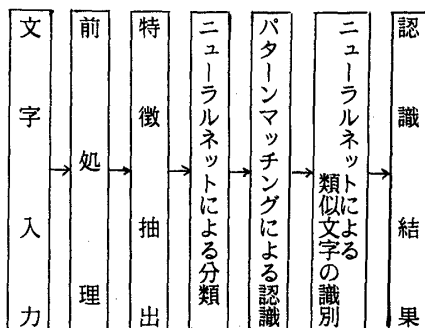 文字入力
前処理
特徴抽出
ニューラルネットによる分類
パターンマッチングによる認識
ニューラルネットによる
類似文字の識別
認識結果